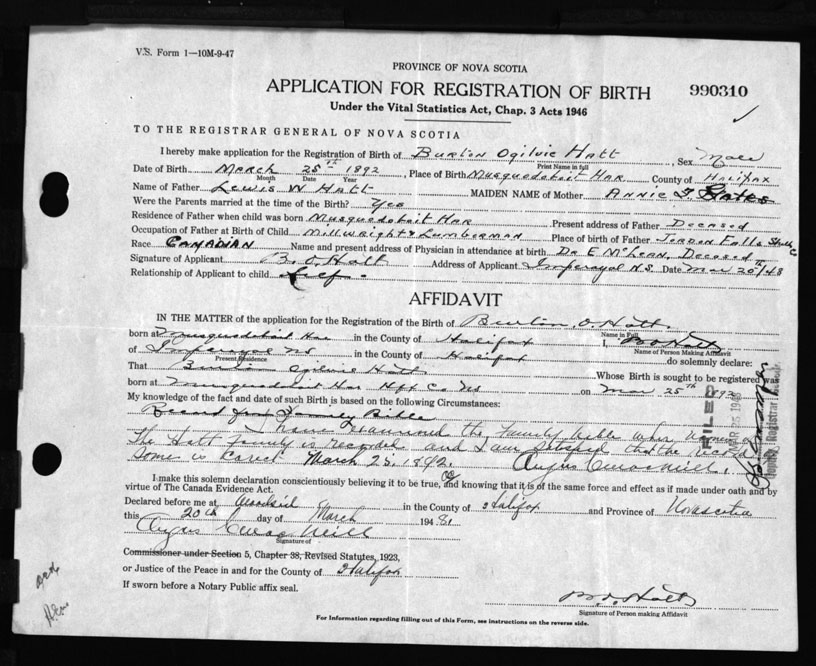 V.S. Form 1—10M-9-47
PROVINCE OF NOVA SCOTIA
APPLICATION FOR REGISTRATION OF BIRTH 990310
Under the Vital Statistics Act, Chap. 3 Acts 1946
TO THE REGISTRAR GENERAL OF NOVA SCOTIA
I hereby make application for the Registration of Birth of Burton Ogilvie Hatt, Sex Male
Print Name in full
Date of Birth March 25th 1892, Place of Birth Musquodoboit Har County of Halifax
Month Date Year
Name of Father Lewis W Hatt MAIDEN NAME of Mother Annie
Were the Parents married at the time of the Birth? Yes
Residence of Father when child was born Musquodoboit Har Present address of Father Deceased
Occupation of Father at Birth of Child Millwright & Lumberman Place of birth of Father Jordan Falls
Race CANADIAN Name and present address of Physician in attendance at birth Dr E McLean, Deceased
Signature of Applicant B. O. Hatt Address of Applicant Imperoyal N.S. Date Mar 20th/48
Relationship of Applicant to child Self
AFFIDAVIT
IN THE MATTER of the application for the Registration of the Birth of Burton. O. Hatt.
Name in Full
born at Musquodoboit Har in the County of Halifax I, B O Hatt
Name of Person Making Affidavit
of Imperoyal NS in the County of Halifax do solemnly declare:
Present Residence
That Burton Ogilvie Hatt Whose Birth is sought to be registered was
born at Musquodoboit Har Hfx Co NS on Mar 25th 1892
My knowledge of the fact and date of such Birth is based on the following Circumstances:
Record from Family Bible
I have examined the family bible where
The Hatt family is recorded and I am that the
Same is March 25, 1892. Angus MacNeill.
FILED
Deputy Registrar
I make this solemn declaration conscientiously believing it to be true, and knowing that it is of the same force and effect as if made under oath and by
virtue of The Canada Evidence Act.
Declared before me at in the County of Halifax and Province of Nova Scotia
this 20th day of March 1948
Angus MacNeill
Signature of
Commissioner under Section 5, Chapter 38, Revised Statutes, 1923,
or Justice of the Peace in and for the County of Halifax
If sworn before a Notary Public affix seal.
B. O. Hatt
Signature of Person making Affidavit
For Information regarding filling out of this Form, see instructions on the reverse side.